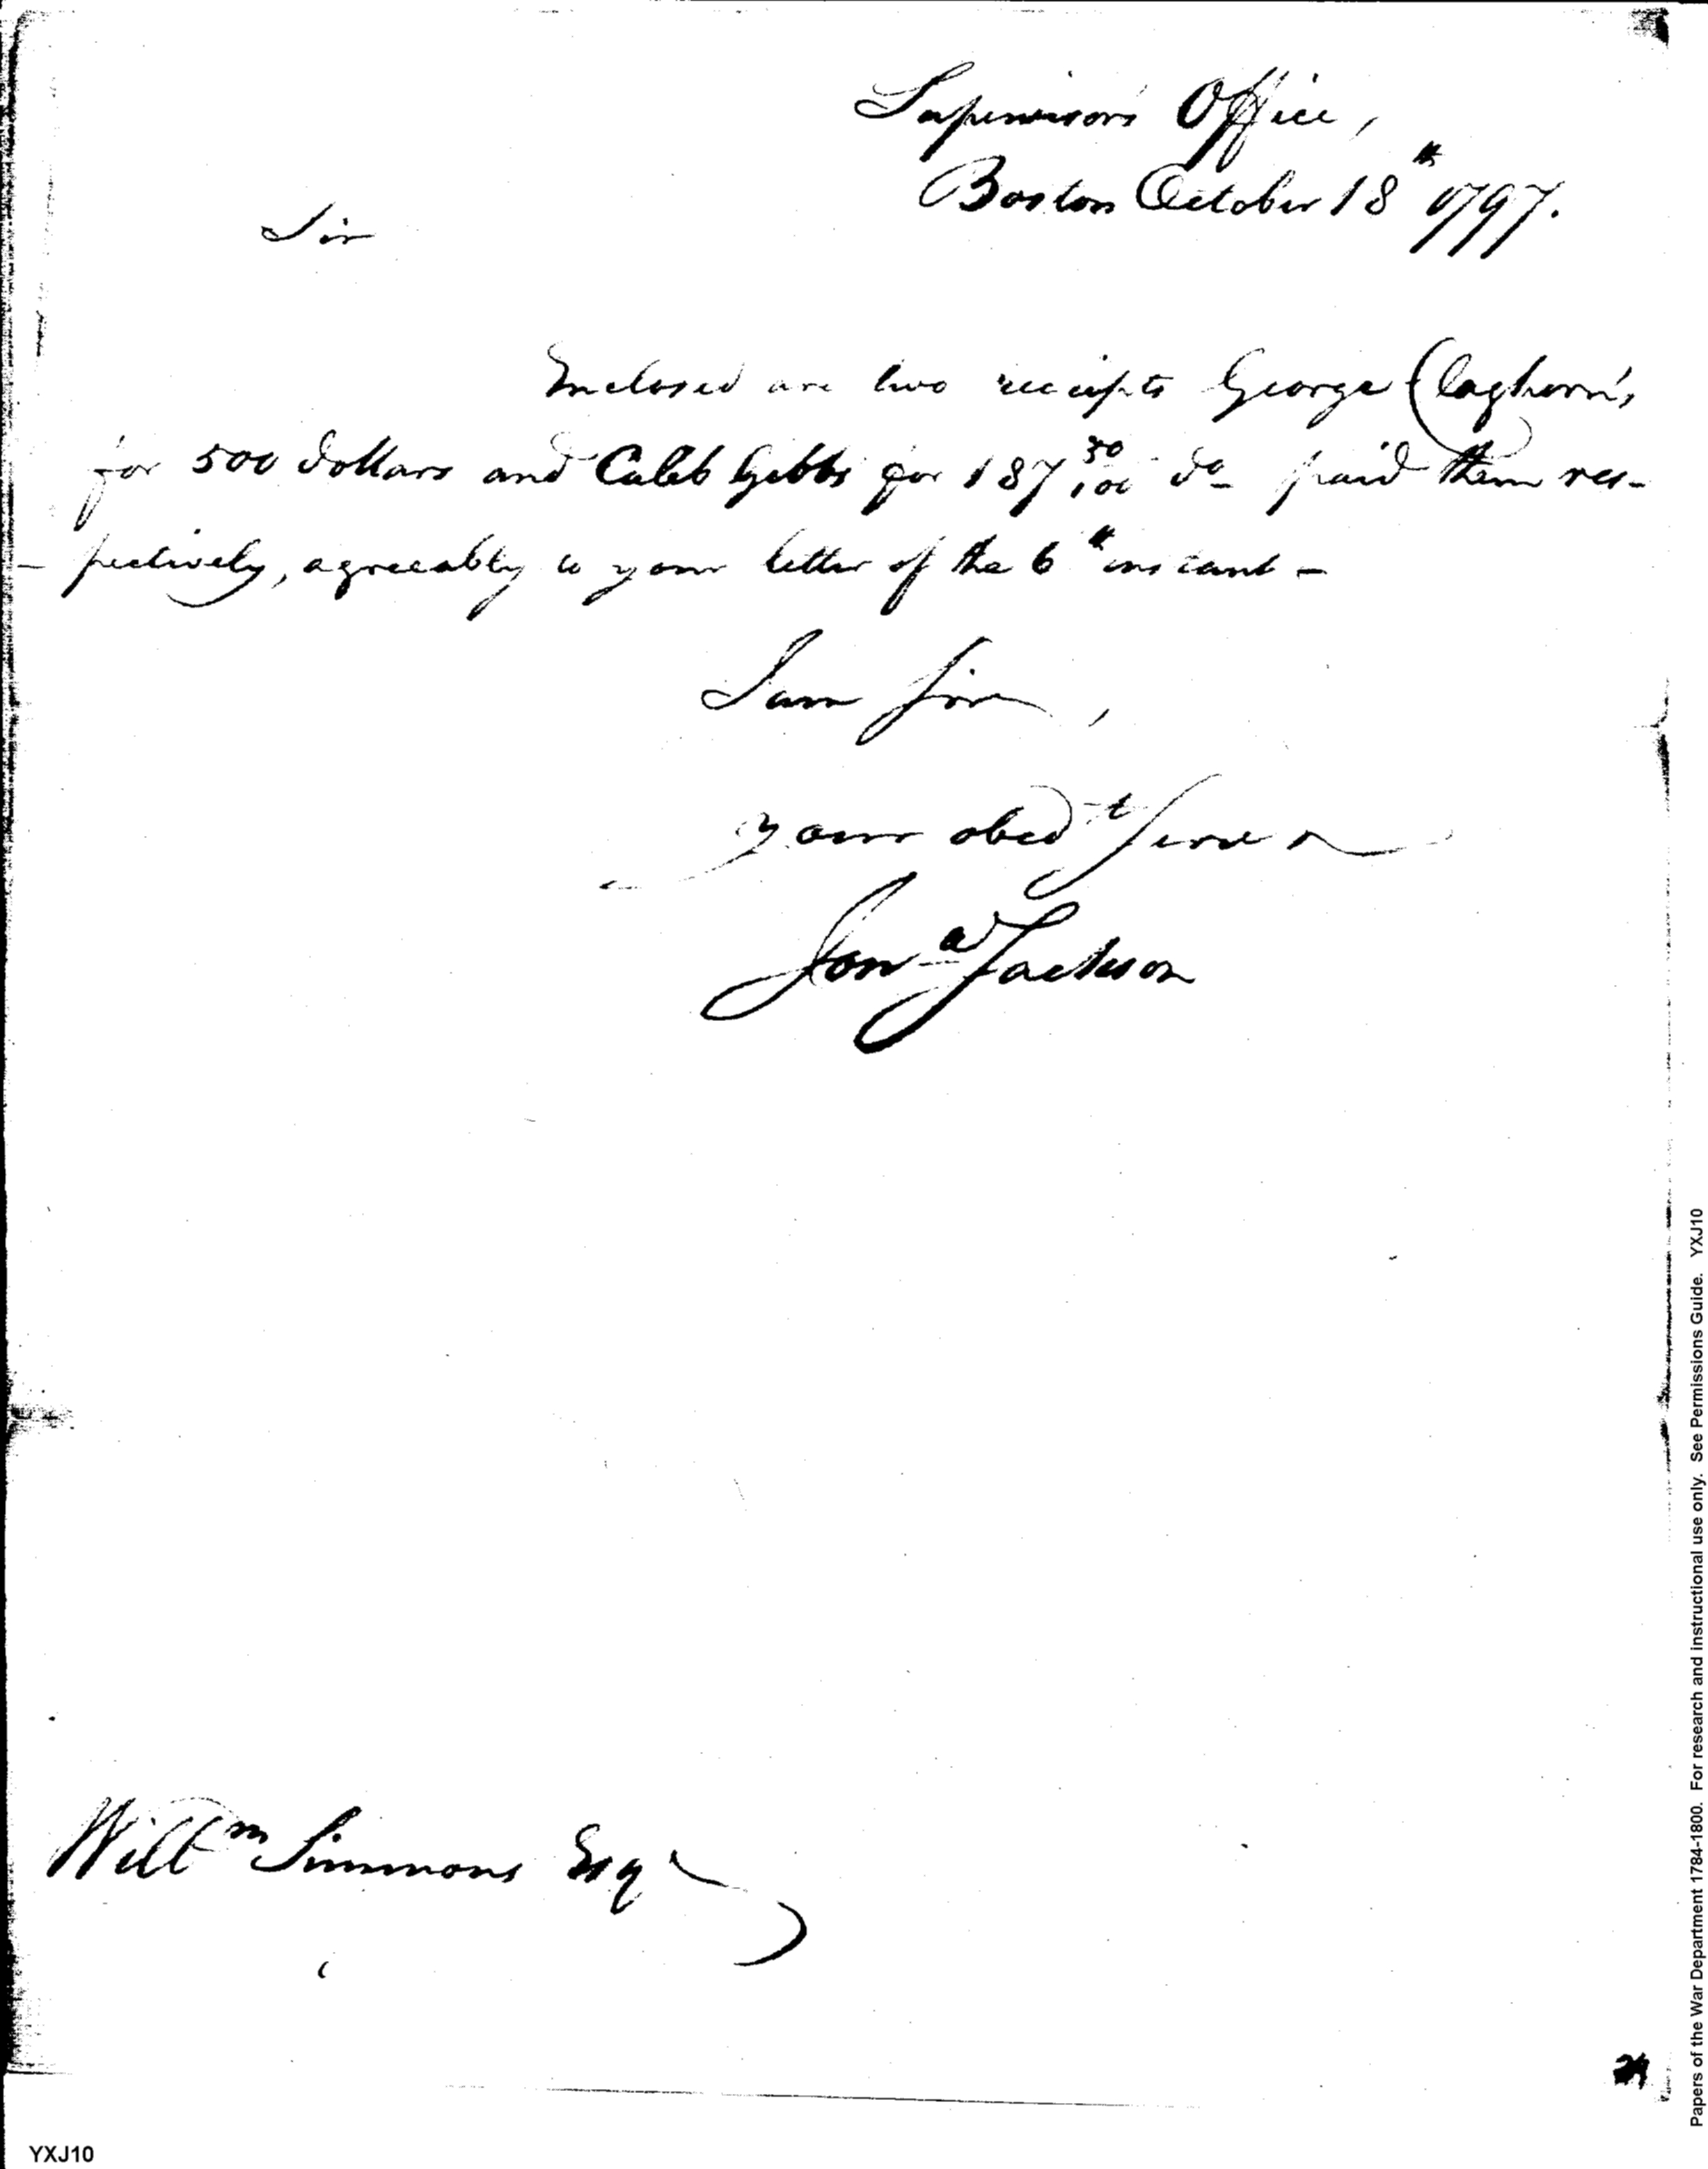 Supervisors Office,
Boston October 18th 1797.
Sir
Enclosed are two receipts George Claghorn's
for 500 dollars and Caleb Gibbs for 187 50/100 do paid them res-
-pectively, agreeably to your letter of the 6th instant -
I am Sir,
your obedt Serva
Jona Jackson
Willm Simmons Esqr
YXJ10
Papers of the War Department 1784-1800. For research and instructional use only. See Permissions Guide. YXJ10